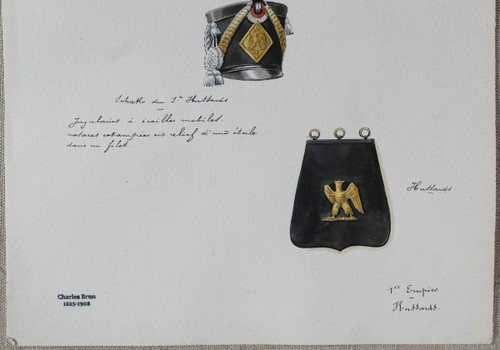 Schako du 1er Hussards
Jugulaires à écailles mobiles.
rosaces estampées en relief d'une étoile
dans un filet.
Hussards
1er Empire
Hussards.
Charles Brun
1825-1908